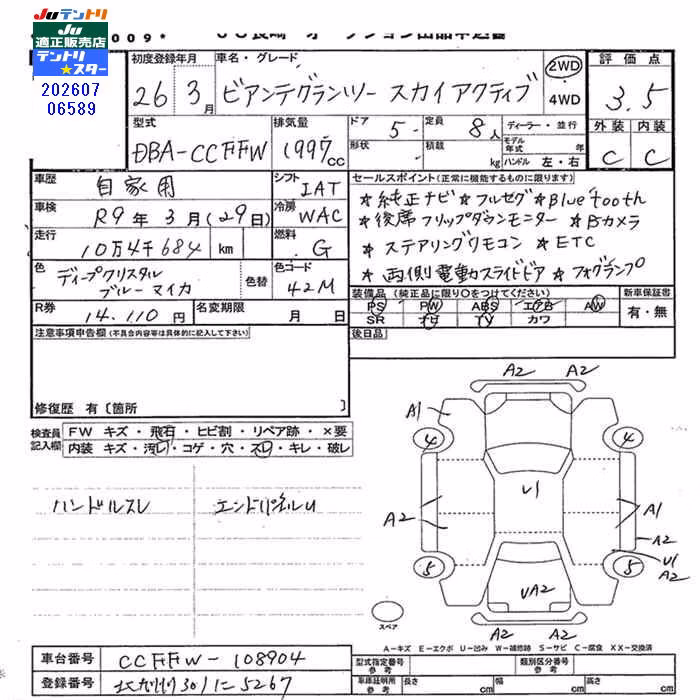 JUテントリ
JU
適正販売店
テントリ
★スター
202607
06589
009*
初度登録年月
26年3月
車名・グレード
ビアンテグランツー スカイアクティブ
2WD
4WD
評価点
3.5
型式
DBA-CCFFW
排気量
1997cc
ドア 5
形状
定員 8人
積載 kg
ディーラー・並行
モデル年式 年
ハンドル 左・右
外装 内装
C C
車歴
自家用
シフト
IAT
車検
R9年3月(29日)
冷房
WAC
走行
10万4千684 km
燃料
G
色
ディープクリスタル
ブルーマイカ
色替
色コード
42M
R券
14.110円
名変期限 月 日
セールスポイント(正常に機能するものに限ります)
★純正ナビ ★フルセグ ★Bluetooth
★後席フリップダウンモニター ★Bカメラ
★ステアリングリモコン ★ETC
★両側電動スライドドア ★フォグランプ
装備品(純正品に限り○をつけてください)
PS PW ABS エアB AW
SR ナビ TV カワ
新車保証書
有・無
注意事項申告欄(不具合内容等は具体的に記入して下さい)
後日品
修復歴 有〔箇所 〕
検査員記入欄
FW キズ・飛石・ヒビ割・リペア跡・×要
内装 キズ・汚レ・コゲ・穴・スレ・キレ・破レ
ハンドルスレ
エンドパネルU
A2 A2
A1
4 4
U1
A2
A1
A2
U1
A2
5 5
UA2
A2 A2
スペア
A-キズ E-エクボ U-凹み W-補修跡 S-サビ C-腐食 XX-交換済
車台番号
CCFFW-108904
登録番号
北九州301に5267
型式指定番号
参考
類別区分番号
参考
車庫証明用
参考
長さ cm
幅 cm
高さ cm